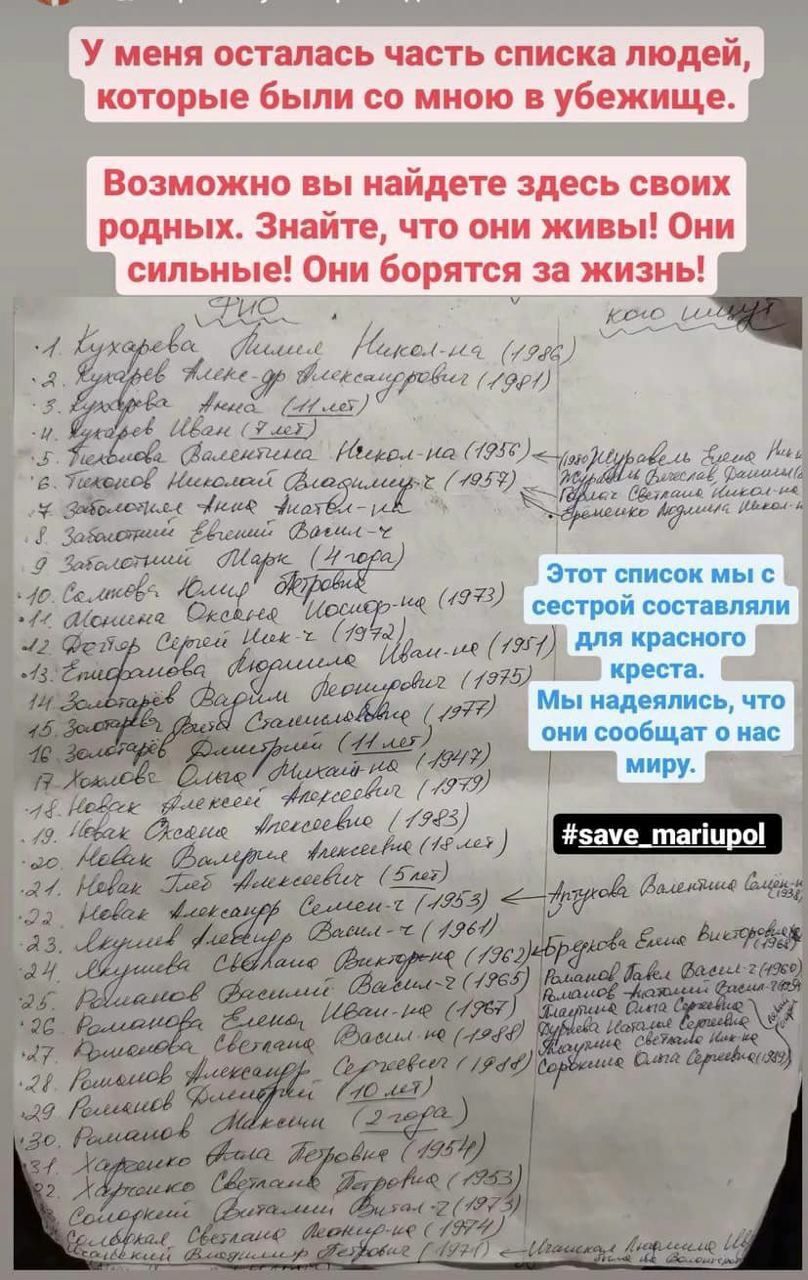 У меня осталась часть списка людей,
которые были со мною в убежище.
Возможно вы найдете здесь своих
родных. Знайте, что они живы! Они
сильные! Они борятся за жизнь!
ФИО
кого ищут
1. Кухарева Лилия Никол-на (1986)
2. Кухарев Алекс-др Александрович (1981)
3. Кухарева Анна (11 лет)
4. Кухарев Иван (7 лет)
5. Тихонова Валентина Никол-на (1956)
6. Тихонов Николай Владимир-ч (1957)
7. Заболотная Анна Анатол-на
8. Заболотний Евгений Васил-ч
9 Заболотний Марк (4 года)
10. Юлия Петровна
11. Монина Оксана Иосиф-на (1973)
12 Сергей Ник-ч (1972)
13. Епифанова Людмила Иван-на (1951)
14. Золотарёв Вадим Леонидович (1975)
15. Золотарёва Вита Станиславовна (1977)
16 Золотарёв Дмитрий (11 лет)
17 Хохлова Ольга Михайл-на (1947)
18. Новак Алексей Алексеевич (1979)
19. Новак Оксана Алексеевна (1983)
20. Новак Валерия Алексеевна (18 лет)
21. Новак Глеб Алексеевич (5 лет)
22. Новак Александр Семен-ч (1953)
23. Якушев Александр Васил-ч (1961)
24 Якушева Светлана Виктор-на (1962)
25. Романов Василий Васил-ч (1965)
26. Романова Елена Иван-на (1967)
27. Романова Светлана Васил-на (1988)
28. Романов Александр Сергеевич (1988)
29 Романов Дмитрий (10 лет)
30. Романов Максим (2 года)
31. Харченко Алла Петровна (1954)
32. Харченко Светлана Петровна (1953)
Солодкий Виталий Витал-ч (1973)
Солодкая Светлана Леонид-на (1974)
Владимир Петрович (1971)
Журавель Елена
Журавель Вячеслав
Светлана Никол-на
Еременко Людмила Никол-н
Этот список мы с
сестрой составляли
для красного
креста.
Мы надеялись, что
они сообщат о нас
миру.
#save_mariupol
Артухова Валентина Семен-н
Елена Викторовна
Романов Павел Васил-ч (1960)
Романов Анатолий Васил-ч
Ольга Сергеевна
Наталья Сергеевна
Светлана Ник-на
Сорокина Ольга Сергеевна (1989)
Людмила